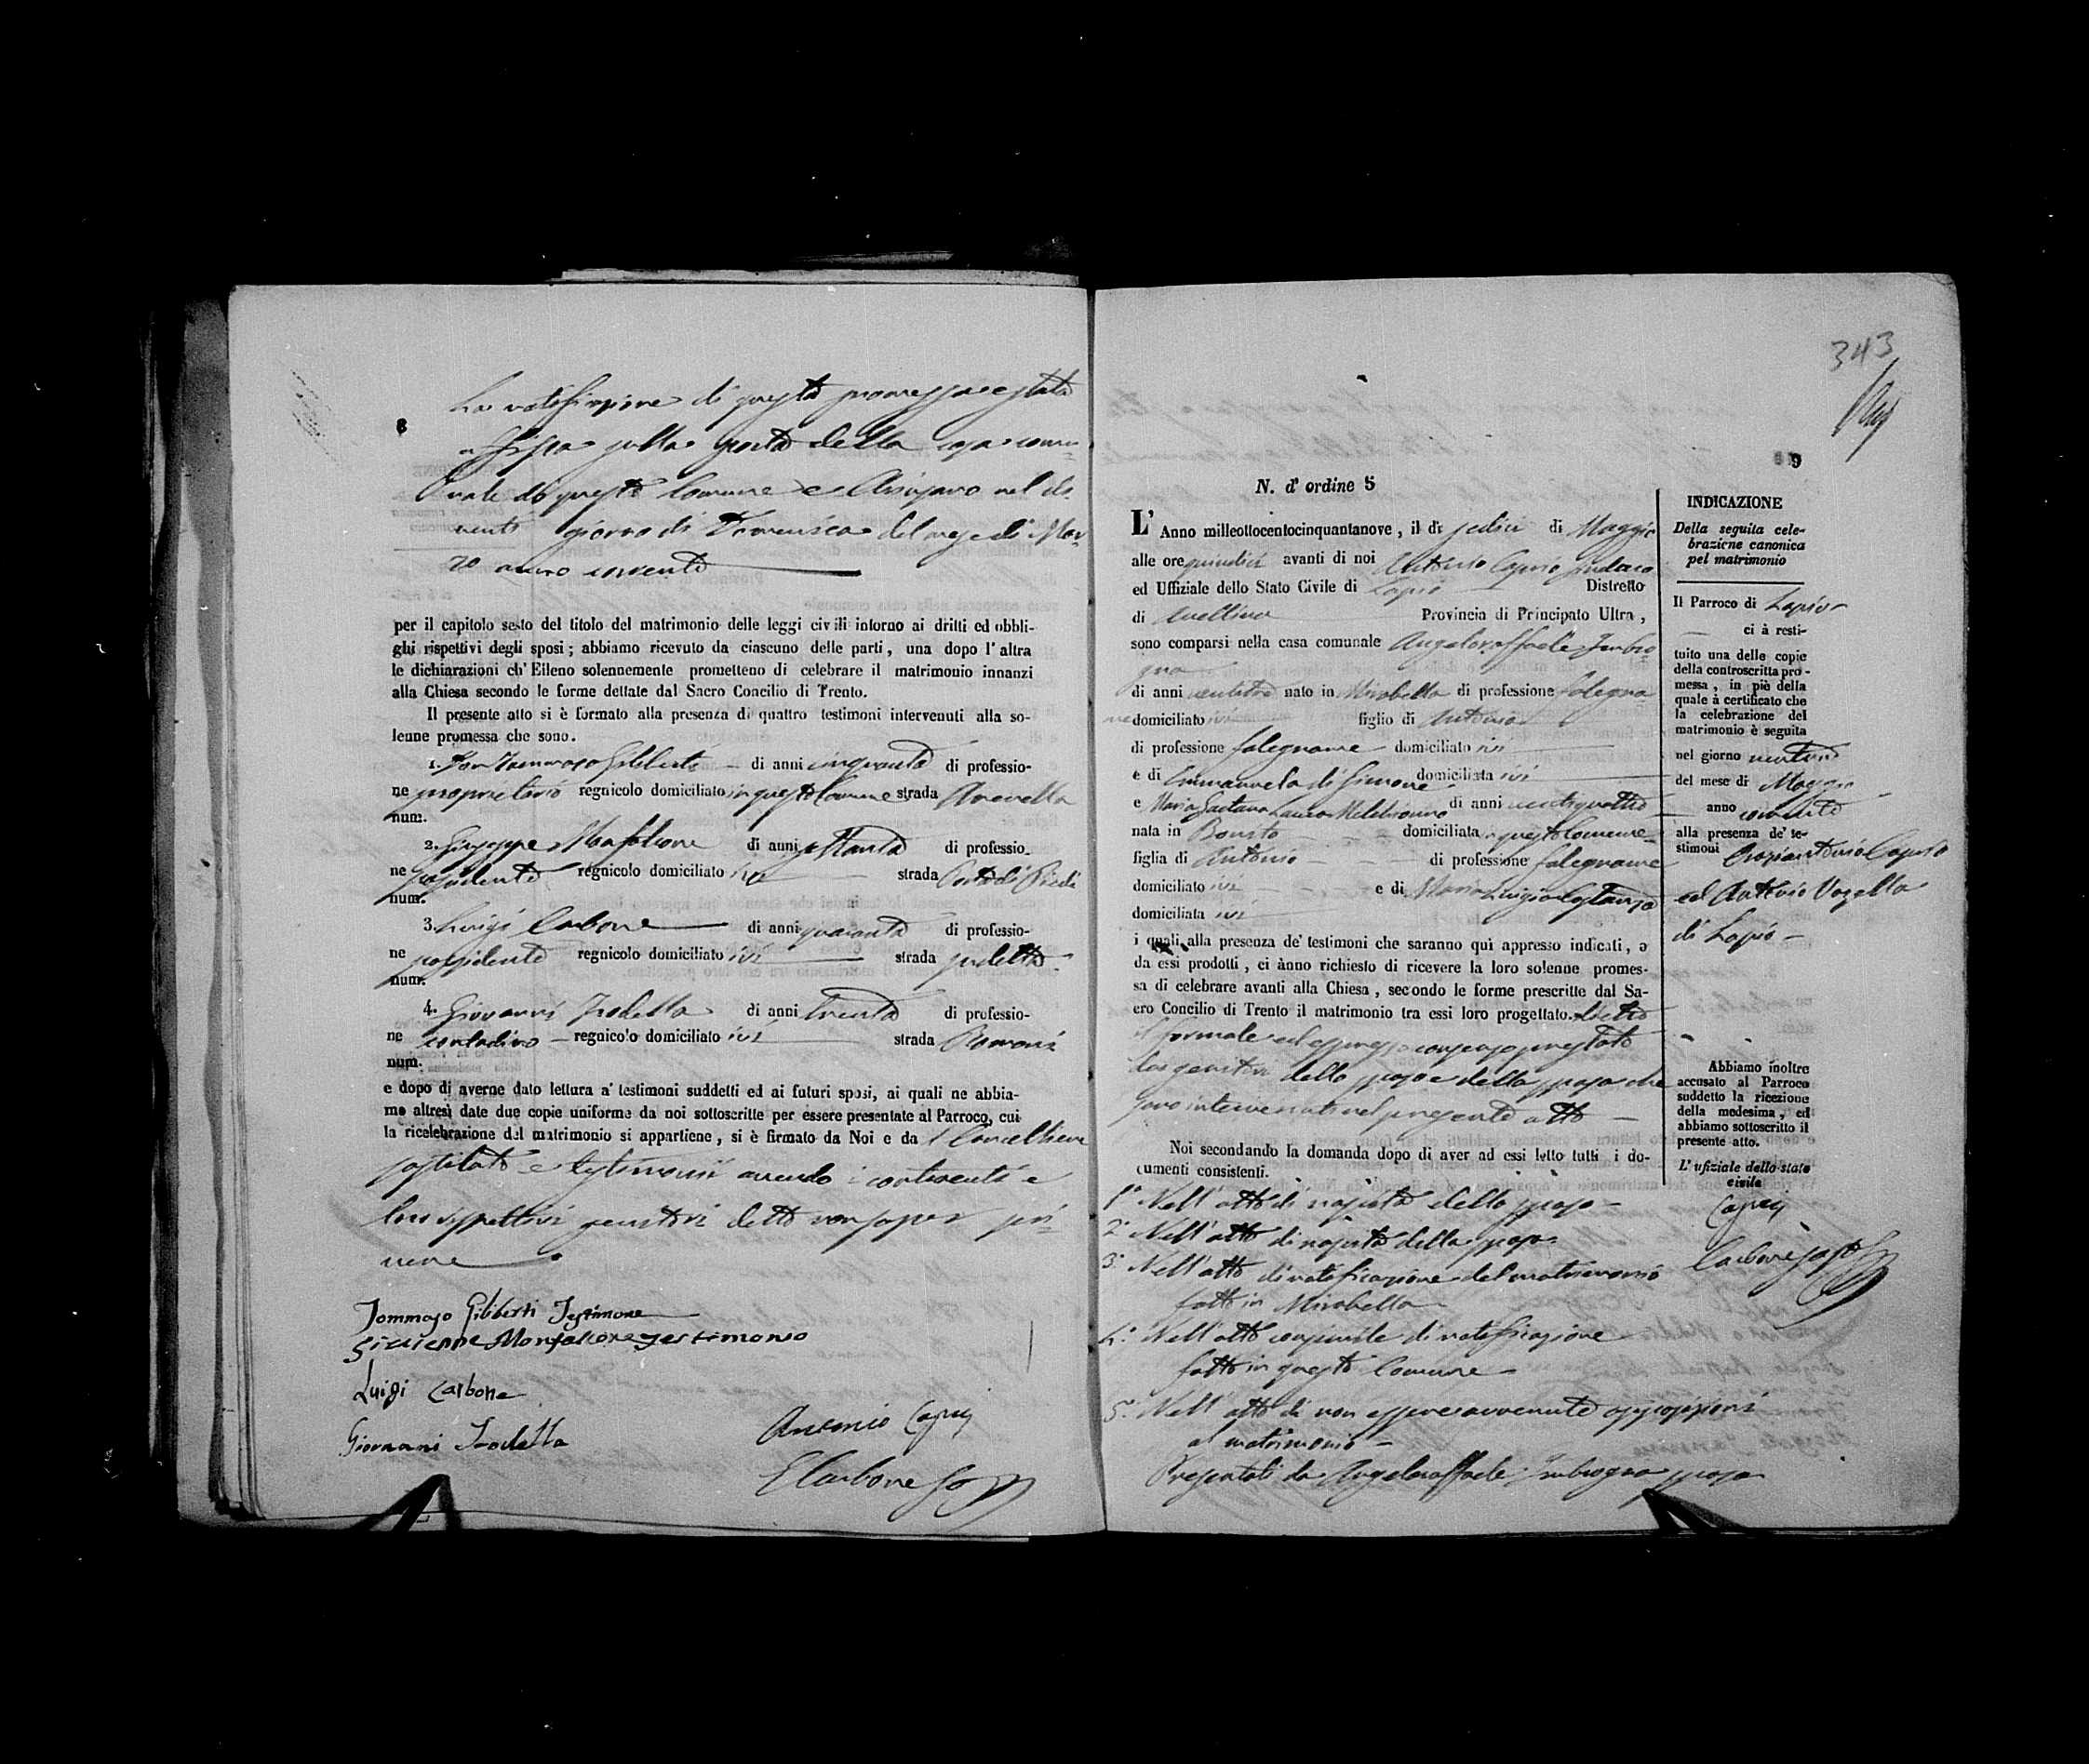 8
La notificazione di questa promessa è stata
affissa sulla porta della casa comu=
nale di questo Comune e Ariano nel dì
venti giorno di Domenica del mese di Mar=
zo anno corrente
per il capitolo sesto del titolo del matrimonio delle leggi civili intorno ai dritti ed obbli-
ghi rispettivi degli sposi; abbiamo ricevuto da ciascuno delle parti, una dopo l'altra
le dichiarazioni ch'Elleno solennemente prometteno di celebrare il matrimonio innanzi
alla Chiesa secondo le forme dettate dal Sacro Concilio di Trento.
Il presente atto si è formato alla presenza di quattro testimoni intervenuti alla so-
lenne promessa che sono.
1. Don Tommaso Giliberti di anni cinquanta di professio-
ne proprietario regnicolo domiciliato in questo Comune strada
num.
2. Giuseppe Monfalcone di anni settanta di professio-
ne possidente regnicolo domiciliato ivi strada Costa di Piedi
num.
3. Luigi Carbone di anni quaranta di professio-
ne possidente regnicolo domiciliato ivi strada sudetta
num.
4. Giovanni Trodella di anni trenta di professio-
ne contadino regnicolo domiciliato ivi strada
num.
e dopo di averne dato lettura a' testimoni suddetti ed ai futuri sposi, ai quali ne abbia-
mo altresì date due copie uniforme da noi sottoscritte per essere presentate al Parroco, cui
la ricelebrazione del matrimonio si appartiene, si è firmato da Noi e da l Cancelliere
sostituto e testimoni avendo i contraenti e
loro rispettivi genitori detto non saper scri=
vere
Tommaso Giliberti Testimone
Giuseppe Monfalcone testimonio
Luigi Carbone
Giovanni Trodella
Antonio Caprij
E Carbone
343
9
N. d' ordine 5
L' Anno milleottocentocinquantanove, il dì sedici di Maggio
alle ore quindici avanti di noi Antonio Caprio Sindaco
ed Uffiziale dello Stato Civile di Lapio Distretto
di Avellino Provincia di Principato Ultra,
sono comparsi nella casa comunale Angeloraffaele Imbro
gna
di anni ventitre nato in Mirabella di professione falegna=
me domiciliato ivi figlio di Antonio
di professione falegname domiciliato ivi
e di Emmanuela di Simone domiciliata ivi
e Maria Gaetana Laura di anni ventiquattro
nata in Bonito domiciliata in questo Comune
figlia di Antonio di professione falegname
domiciliato ivi e di Maria Luigia Costanzo
domiciliata ivi
i quali alla presenza de' testimoni che saranno qui appresso indicati, e
da essi prodotti, ci ànno richiesto di ricevere la loro solenne promes-
sa di celebrare avanti alla Chiesa, secondo le forme prescritte dal Sa-
cro Concilio di Trento il matrimonio tra essi loro progettato.
il formale ed espresso consenso prestato
da genitori dello sposo e della sposa che
sono intervenuti nel presente atto
Noi secondando la domanda dopo di aver ad essi letto tutti i do-
cumenti consistenti.
1° Nell'atto di nascita dello sposo
2° Nell'atto di nascita della sposa
3° Nell'atto di notificazione del matrimonio
fatto in Mirabella
4° Nell'atto consimile di notificazione
fatto in questo Comune
5° Nell'atto di non essere avvenute opposizioni
al matrimonio
Presentati da Angeloraffaele Imbrogna sposo
INDICAZIONE
Della seguita cele-
brazione canonica
pel matrimonio
Il Parroco di Lapio
ci à resti-
tuito una delle copie
della controscritta pro-
messa, in piè della
quale à certificato che
la celebrazione del
matrimonio è seguita
nel giorno
del mese di Maggio
anno corrente
alla presenza de' te-
stimoni Caputo
ed Antonio Vozella
di Lapio
Abbiamo inoltre
accusato al Parroco
suddetto la ricezione
della medesima, ed
abbiamo sottoscritto il
presente atto.
L' ufiziale dello stato
civile
Caprij
Carbone